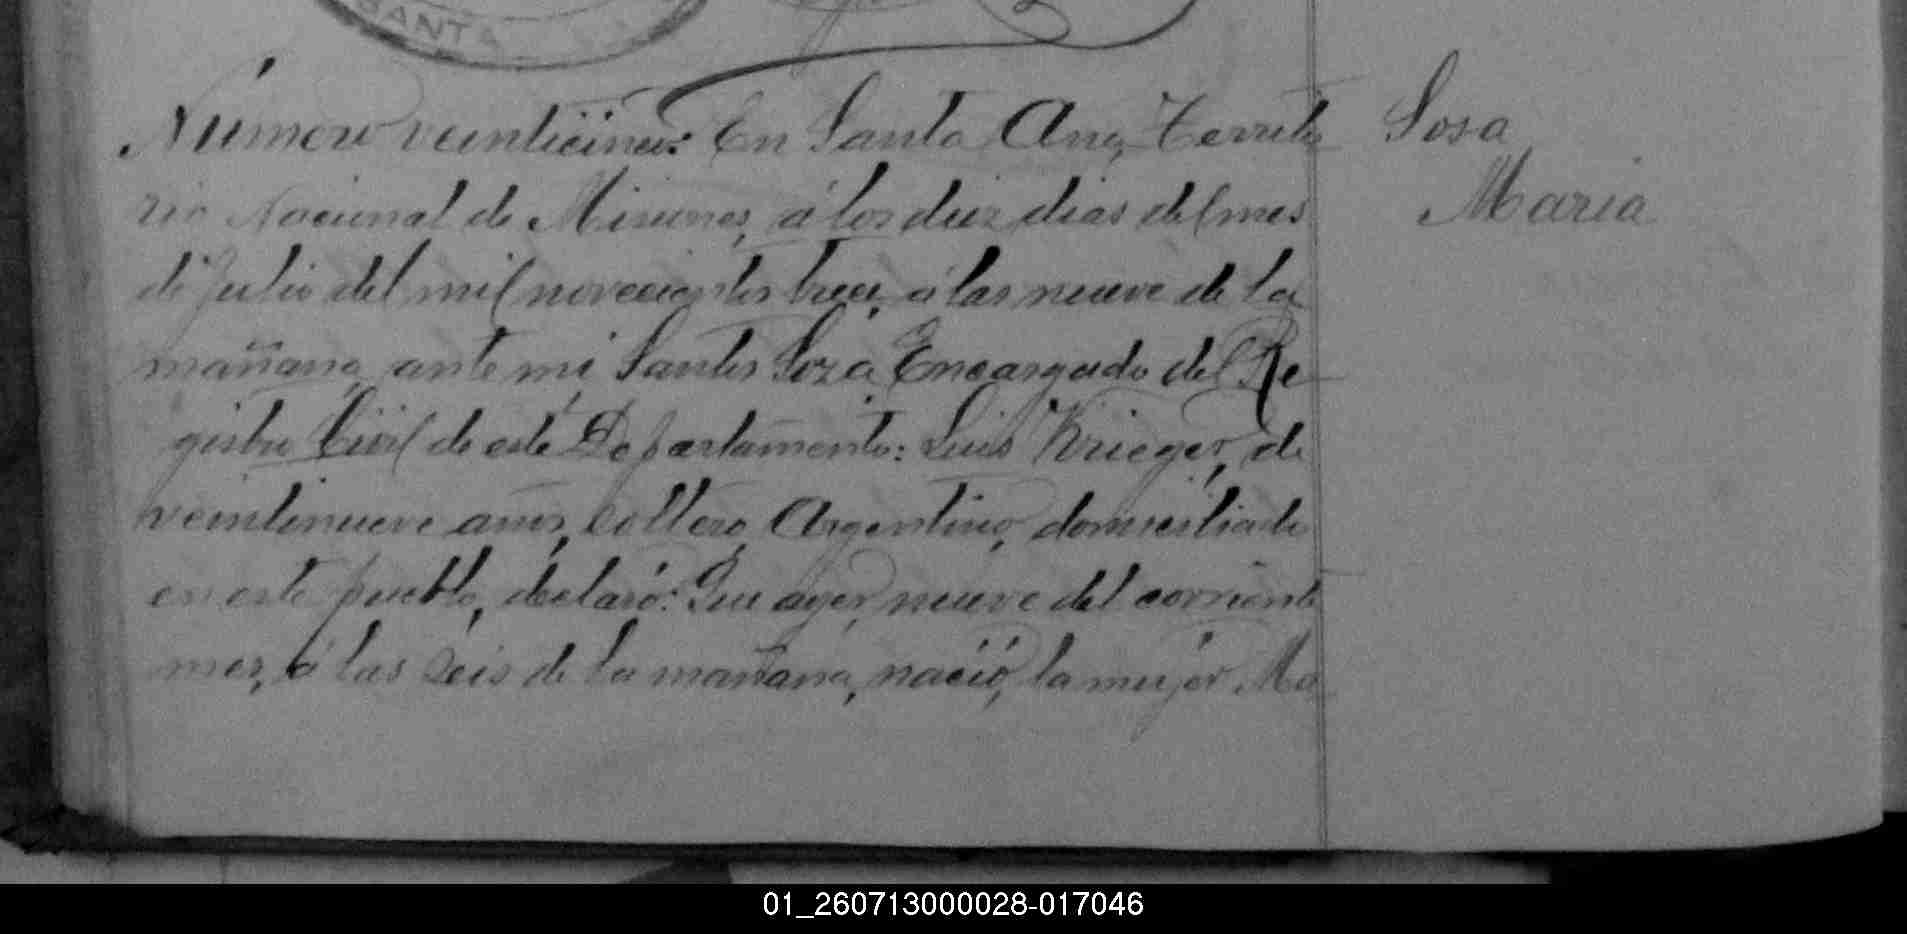 SANTA
Número veinticinco: En Santa Ana, Territo
rio Nacional de Misiones, á los diez dias del mes
de Julio del mil novecientos trece, á las nueve de la
mañana, ante mi Santos Soza, Encargado del Re
gistro Civil de este Departamento: Luis Krieger, de
veintinueve años, soltero, Argentino, domiciliado
en este pueblo, declaró: Que ayer, nueve del corriente
mes, á las seis de la mañana, nació, la mujer Ma
Sosa
Maria
01_260713000028-017046